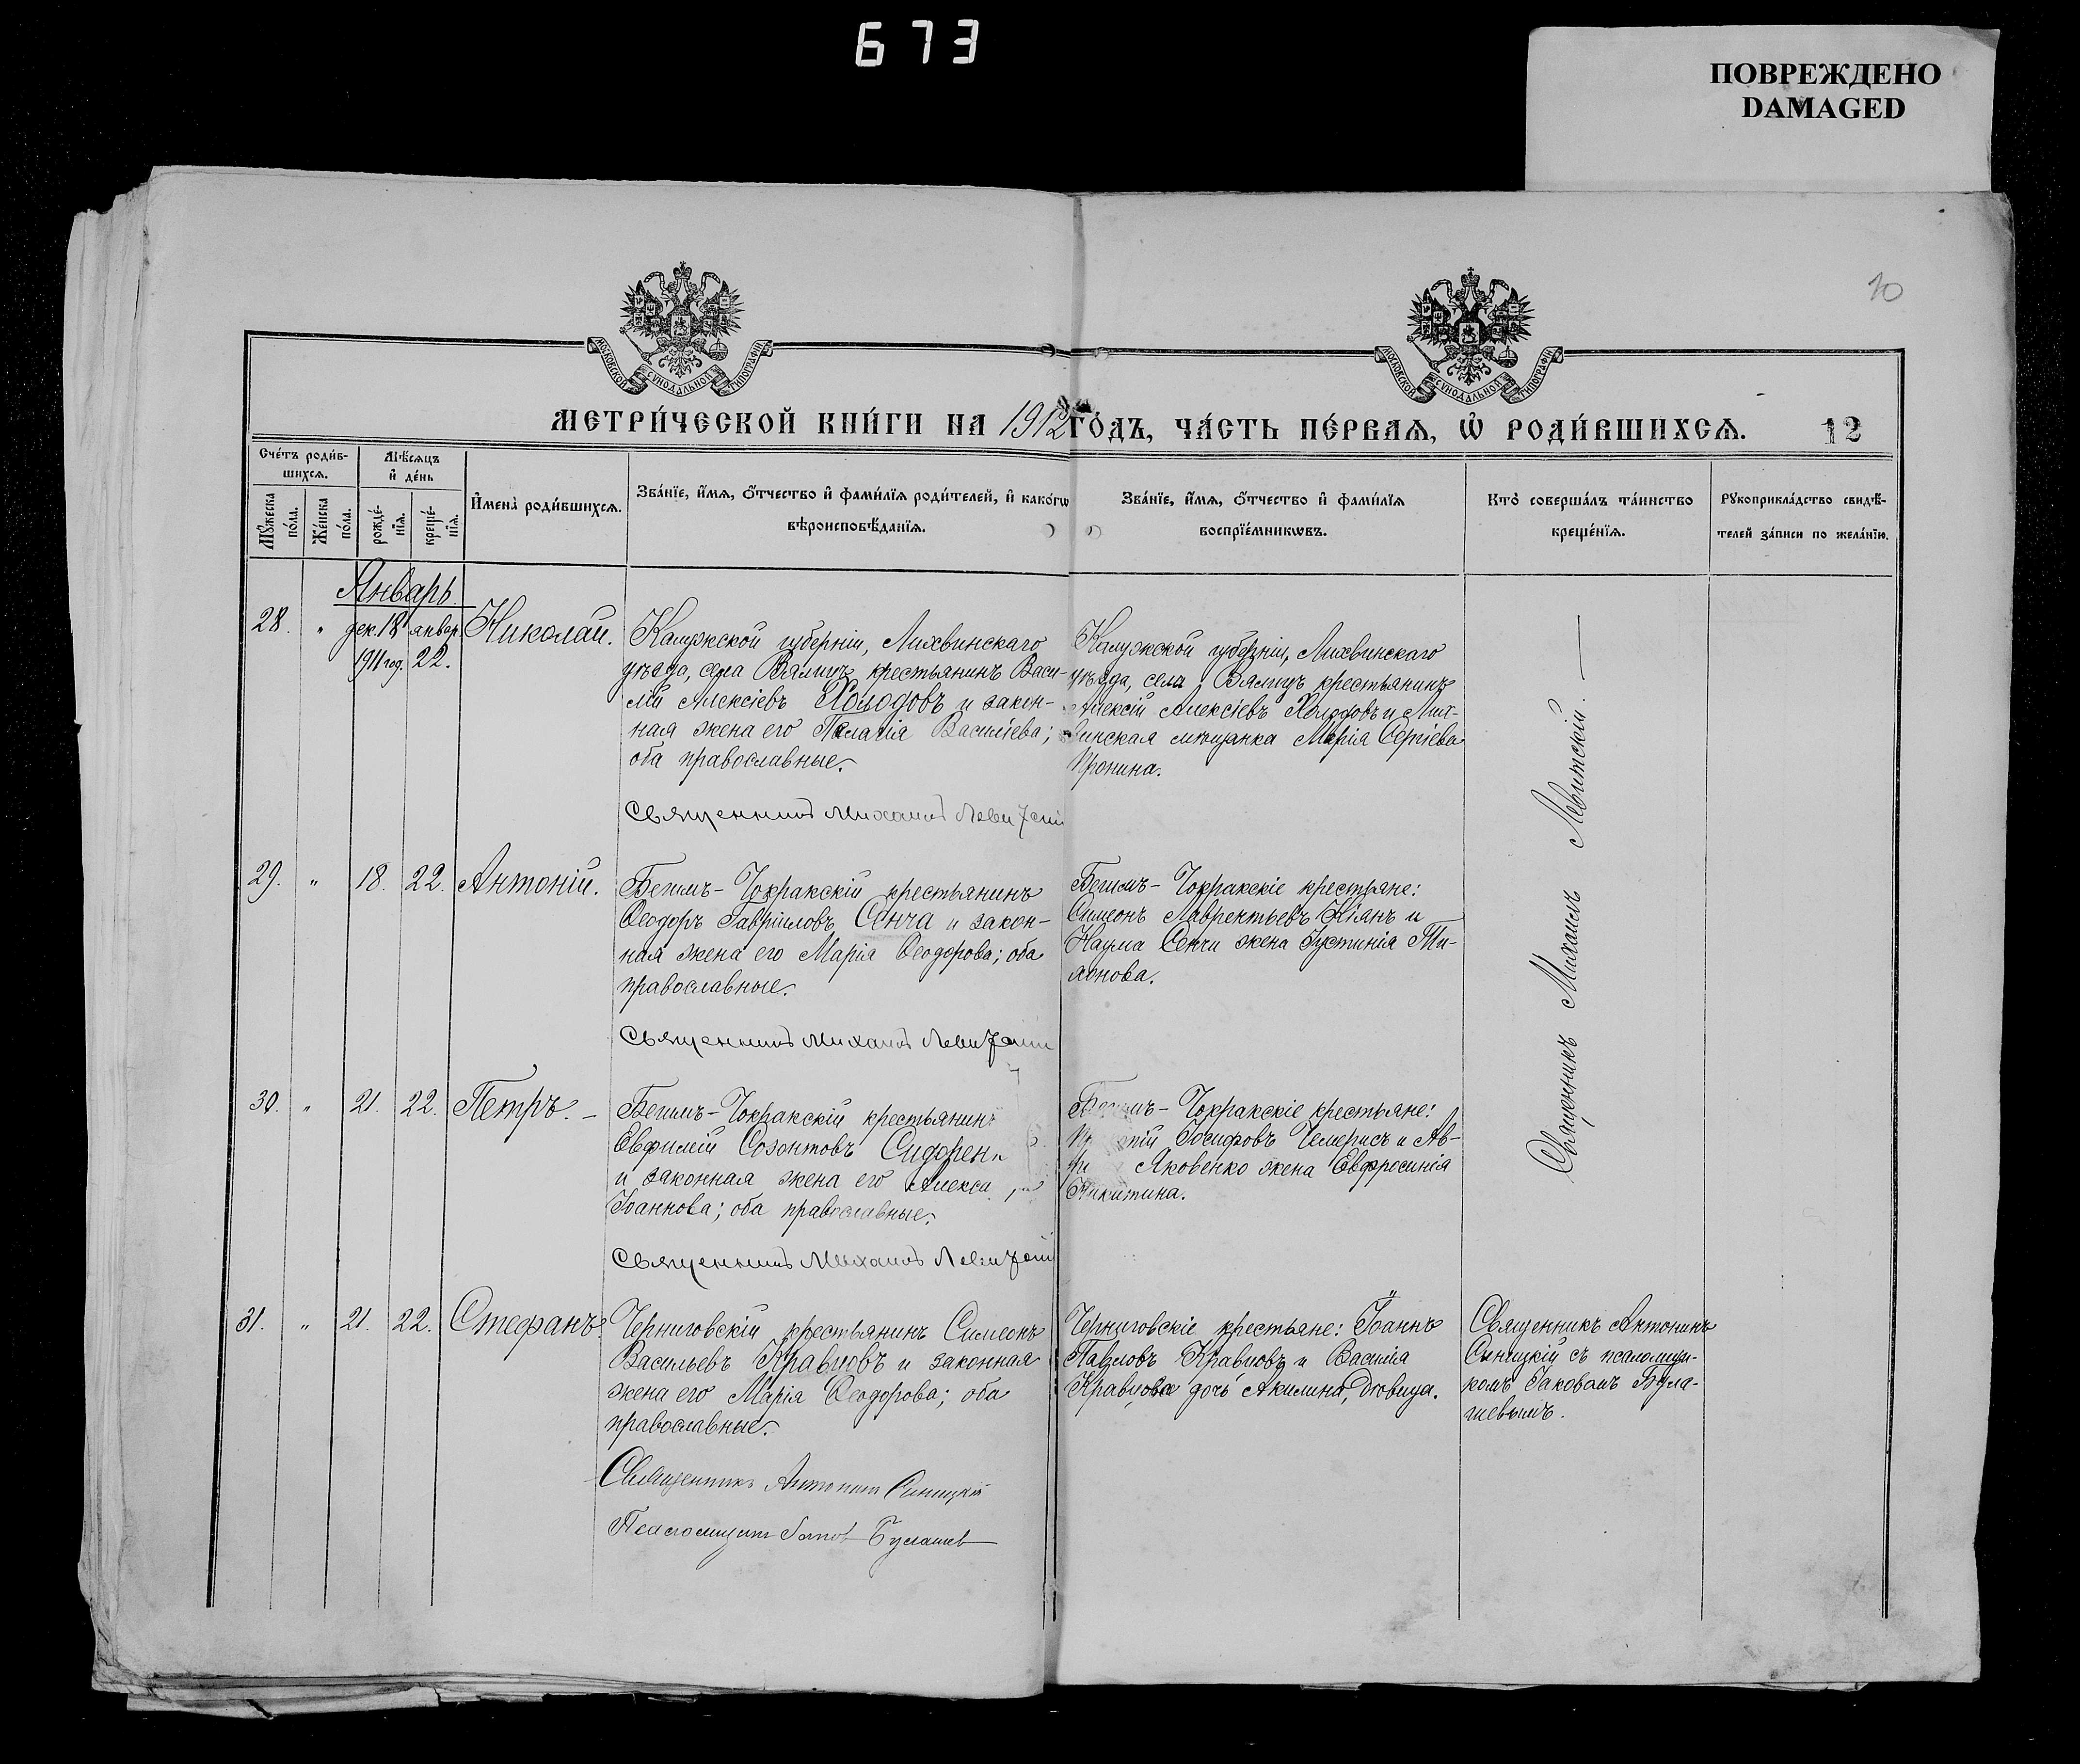 673
ПОВРЕЖДЕНО
DAMAGED
10
МОСКОВСКОЙ СѴНОДАЛЬНОЙ ТИПОГРАФІИ
МОСКОВСКОЙ СѴНОДАЛЬНОЙ ТИПОГРАФІИ
МЕТРИ́ЧЕСКОЙ КНИ́ГИ НА 1912 ГО́ДЪ, ЧА́СТЬ ПЕ́РВАѦ, Ѡ҆ РОДИ́ВШИХСѦ.
12
Сче́тъ роди́в-
шихсѧ.
Мѣ́сѧцъ
и҆ де́нь
Мꙋ́жеска
по́ла.
Же́нска
по́ла.
рожде́-
нїѧ.
креще́-
нїѧ.
И҆мена̀ роди́вшихсѧ.
Зва́нїе, и҆́мѧ, ѻ҆́тчество и҆ фами́лїѧ роди́телей, и҆ како́гѡ
вѣроисповѣ́данїѧ.
Зва́нїе, и҆́мѧ, ѻ҆́тчество и҆ фами́лїѧ
воспрїе́мникѡвъ.
Кто̀ соверша́лъ та́инство
креще́нїѧ.
Рꙋкоприкла́дство свидѣ́-
телей за́писи по жела́нїю.
Январь.
28. " дек. 18 январ. Николай.
1911 год. 22.
Калужской губерніи, Лихвинскаго
уѣзда, села Вялицъ крестьянинъ Васи-
лій Алексіевъ Холодовъ и закон-
ная жена его Пелагія Василіева;
оба православные.
Священникъ Михаилъ Левитскій
Калужской губерніи, Лихвинскаго
уѣзда, села Вялицъ крестьянинъ
Алексій Алексіевъ Холодовъ и Лих-
винская мѣщанка Марія Сергіева
Пронина.
Священникъ Михаилъ Левитскій.
29. " 18. 22. Антоній.
Бешлъ-Чокракскій крестьянинъ
Ѳеодоръ Гавріиловъ Сенча и закон-
ная жена его Марія Ѳеодорова; оба
православные.
Священникъ Михаилъ Левитскій
Крестьяне:
Симеонъ Лаврентьевъ Кіянъ и
Наума Сенчи жена Іустинія Ти-
хонова.
30. " 21. 22. Петръ.
крестьянинъ
Евфимій Созонтовъ Сидорен
и законная жена его Алекса
Іоаннова; оба православные.
Священникъ Михаилъ Левитскій
крестьяне:
Іосифовъ Чемерисъ и Ав-
Яковенко жена Евфросинія
Никитина.
31. " 21. 22. Стефанъ.
Черниговскій крестьянинъ Симеонъ
Васильевъ Кравцовъ и законная
жена его Марія Ѳеодорова; оба
православные.
Священникъ Антонинъ Синицкій
Псаломщикъ Іаковъ Булашев
Черниговскіе крестьяне: Іоаннъ
Павловъ Кравцовъ и Василія
Кравцова дочь Акилина, дѣвица.
Священникъ Антонинъ
Синицкій съ псаломщи-
комъ Іаковомъ Була-
шевымъ.